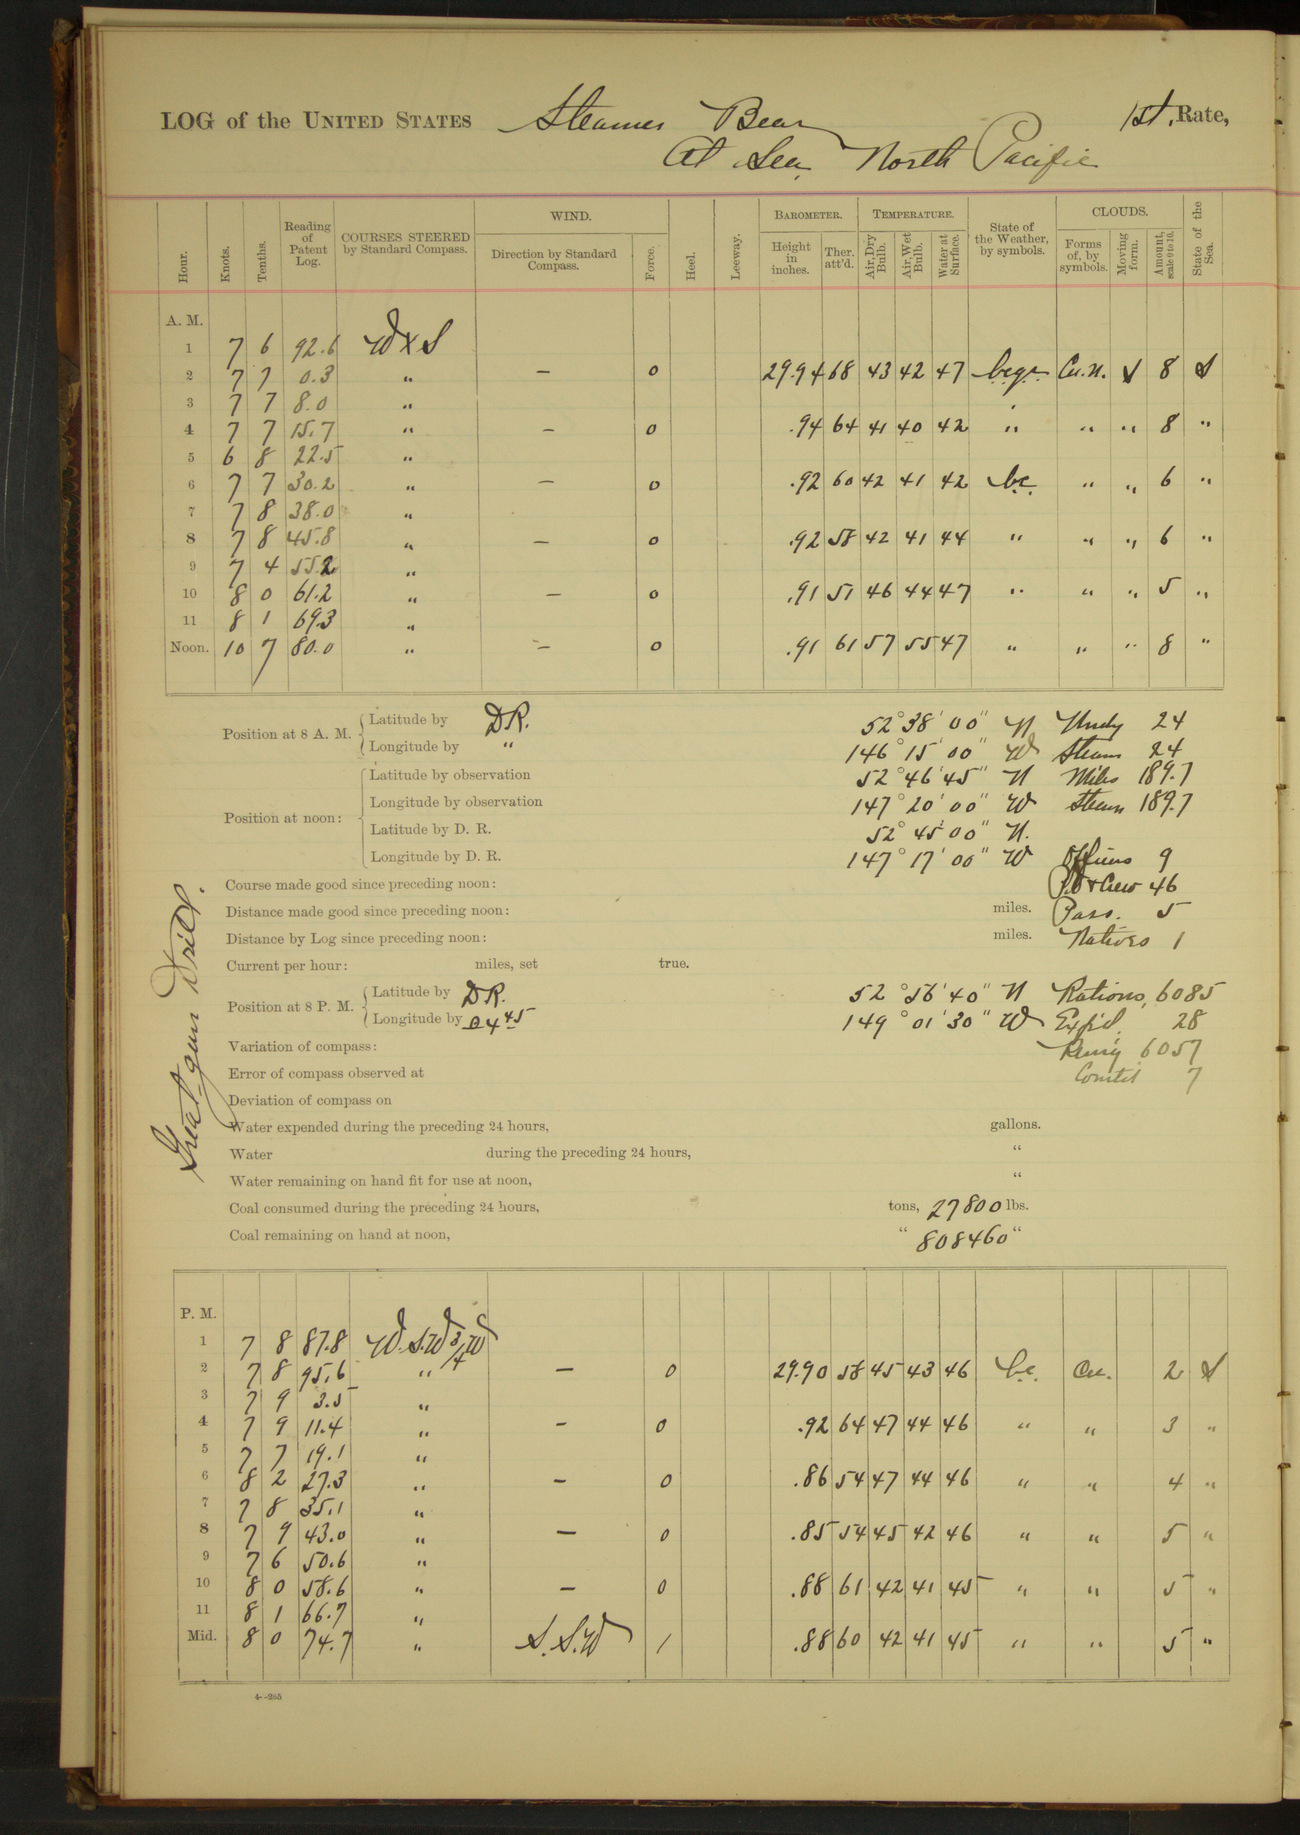 LOG of the UNITED STATES Steamer Bear 1st. Rate,
At Sea, North Pacific
Hour. Knots. Tenths. Reading of Patent Log. COURSES STEERED by Standard Compass. WIND. Direction by Standard Compass. Force. Heel. Leeway. BAROMETER. Height in inches. Ther. att'd. TEMPERATURE. Air, Dry Bulb. Air, Wet Bulb. Water at Surface. State of the Weather, by symbols. CLOUDS. Forms of, by symbols. Moving form. Amount, scale 0 to 10. State of the Sea.
A. M.
1 7 6 92.6 W x S
2 7 7 0.3 " — 0 29.94 68 43 42 47 Cu.N. 8 S
3 7 7 8.0 "
4 7 7 15.7 " — 0 .94 64 41 40 42 " " " 8 "
5 6 8 22.5 "
6 7 7 30.2 " — 0 .92 60 42 41 42 b.c. " " 6 "
7 7 8 38.0 "
8 7 8 45.8 " — 0 .92 58 42 41 44 " " " 6 "
9 7 4 55.2 "
10 8 0 61.2 " — 0 .91 51 46 44 47 " " " 5 "
11 8 1 69.3 "
Noon. 10 7 80.0 " — 0 .91 61 57 55 47 " " " 8 "
Position at 8 A. M. Latitude by DR. 52° 38' 00" N Undy 24
Longitude by " 146° 15' 00" W Steam 24
Position at noon: Latitude by observation 52° 46' 45" N Miles 189.7
Longitude by observation 147° 20' 00" W Steam 189.7
Latitude by D. R. 52° 45' 00" N.
Longitude by D. R. 147° 17' 00" W Officers 9
Course made good since preceding noon: P.O + Crew 46
Distance made good since preceding noon: miles. Pass. 5
Distance by Log since preceding noon: miles. Natives 1
Current per hour: miles, set true.
Position at 8 P. M. Latitude by DR. 52° 56' 40" N Rations, 6085
Longitude by 4 45 149° 01' 30" W Exp'd. 28
Variation of compass: Rem'g 6057
Error of compass observed at 7
Deviation of compass on
Water expended during the preceding 24 hours, gallons.
Water during the preceding 24 hours, "
Water remaining on hand fit for use at noon, "
Coal consumed during the preceding 24 hours, tons, 27800 lbs.
Coal remaining on hand at noon, " 808460 "
Great gun Drill.
P. M.
1 7 8 87.8 W.S.W 3/4 W
2 7 8 95.6 " — 0 29.90 58 45 43 46 b.c. Cu. 2 S
3 7 9 3.5 "
4 7 9 11.4 " — 0 .92 64 47 44 46 " " 3 "
5 7 7 19.1 "
6 8 2 27.3 " — 0 .86 54 47 44 46 " " 4 "
7 7 8 35.1 "
8 7 9 43.0 " — 0 .85 54 45 42 46 " " 5 "
9 7 6 50.6 "
10 8 0 58.6 " — 0 .88 61 42 41 45 " " 5 "
11 8 1 66.7 "
Mid. 8 0 74.7 " S.S.W 1 .88 60 42 41 45 " " 5 "
4--265